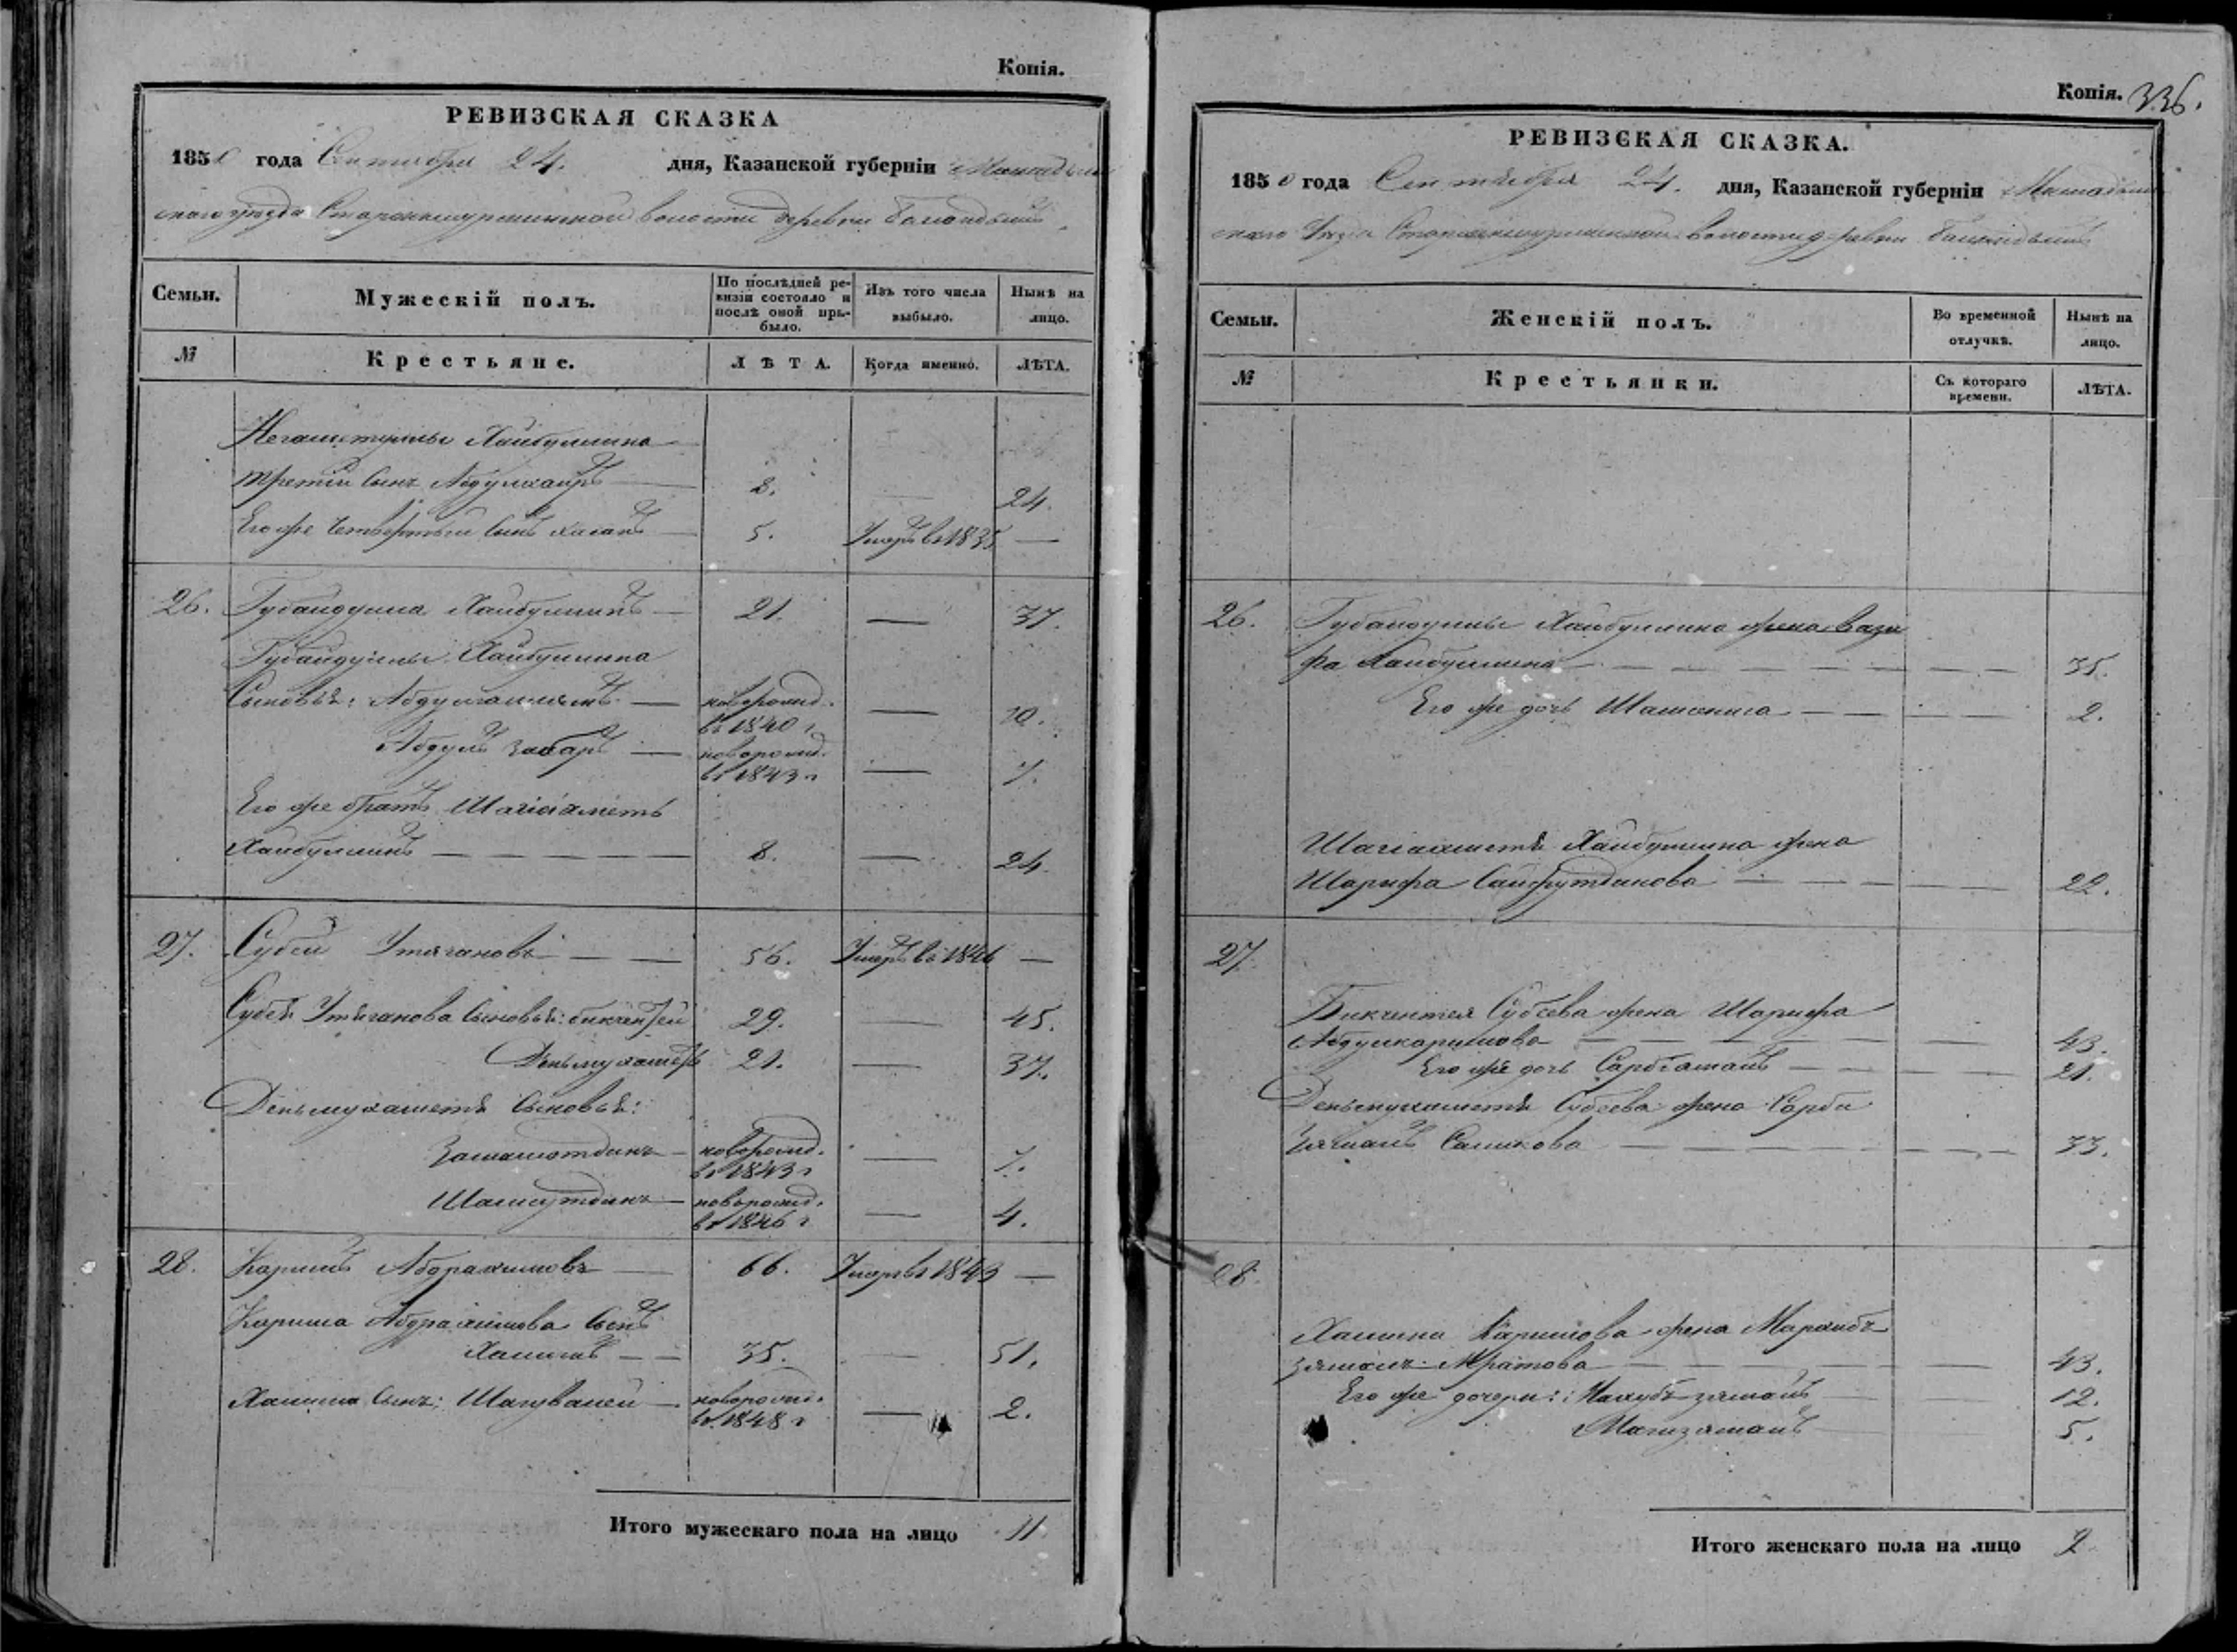 Копія.
РЕВИЗСКАЯ СКАЗКА
1850 года Сентября 24. дня, Казанской губерніи Мамадыш
скаго уѣзда волости деревни
Семьи.
Мужескій полъ.
По послѣдней ре-
визіи состояло и
послѣ оной при-
было.
Изъ того числа
выбыло.
Нынѣ на
лицо.
№
Крестьяне.
ЛѢТА.
Когда именно.
ЛѢТА.
Хайбуллина
третій сынъ Абдулхаиръ 8. — 24.
Его же четвертый сынъ Хасанъ 5. Умеръ въ 1835 —
26. Губайдулла Хайбуллинъ — 21. — 37.
Губайдуллы Хайбуллина
Сыновья: — новорожд. въ 1840 г — 10.
Абдулъ — новорожд. въ 1843 г — 7.
Его же братъ Шагіахметъ
Хайбуллинъ — 8. — 24.
27. Субей Утягановъ — 56. Умеръ въ 1846 —
Субея Утяганова сыновья: Бикчентей 29. — 45.
Деньмухаметъ 21. — 37.
Деньмухаметя сыновья:
Замалотдинъ — новорожд. въ 1843 г — 7.
Шамсутдинъ — новорожд. въ 1846 г — 4.
28. Каримъ Абдрахимовъ — 66. Умеръ въ 1843 —
Карима Абдрахимова сынъ
Халимъ — 35. — 51.
Халима сынъ: Шагувалей — новорожд. въ 1848 г — 2.
Итого мужескаго пола на лицо 11
Копія. 336.
РЕВИЗСКАЯ СКАЗКА.
1850 года Сентября 24. дня, Казанской губерніи Мамадыш
скаго уѣзда волости деревни
Семьи.
Женскій полъ.
Во временной
отлучкѣ.
Нынѣ на
лицо.
№
Крестьянки.
Съ котораго
времени.
ЛѢТА.
26. Губайдуллы Хайбуллина жена Вази
фа Хайбуллина — 35.
Его же дочь — 2.
Шагіахметя Хайбуллина жена
Шарифа Сайфутдинова — 22.
27.
Бикчентея Субеева жена Шарифа
Абдулкаримова — 43.
Его же дочь — 21.
Деньмухаметя Субеева жена Сарби
зямалъ Саликова — 33.
28.
Халима Каримова жена
зямалъ Мратова — 43.
Его же дочери: Махубзямалъ 12.
Магизямалъ 5.
Итого женскаго пола на лицо 9